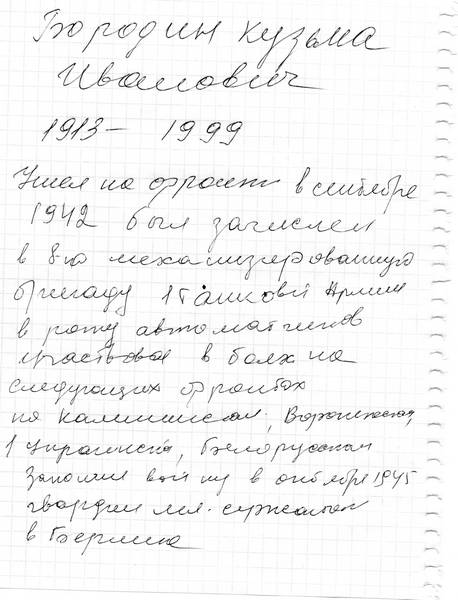 Бородин Кузьма
Иванович
1913 – 1999
Ушел на фронт в сентябре
1942 был зачислен
в 8-ю механизированную
бригаду 1 Танковой Армии
в роту автоматчиков
участвовал в боях на
следующих фронтах
на Калининском, Воронежском,
1 Украинском, Белорусском
Закончил войну в октябре 1945
гвардии мл. сержантом
в Берлине